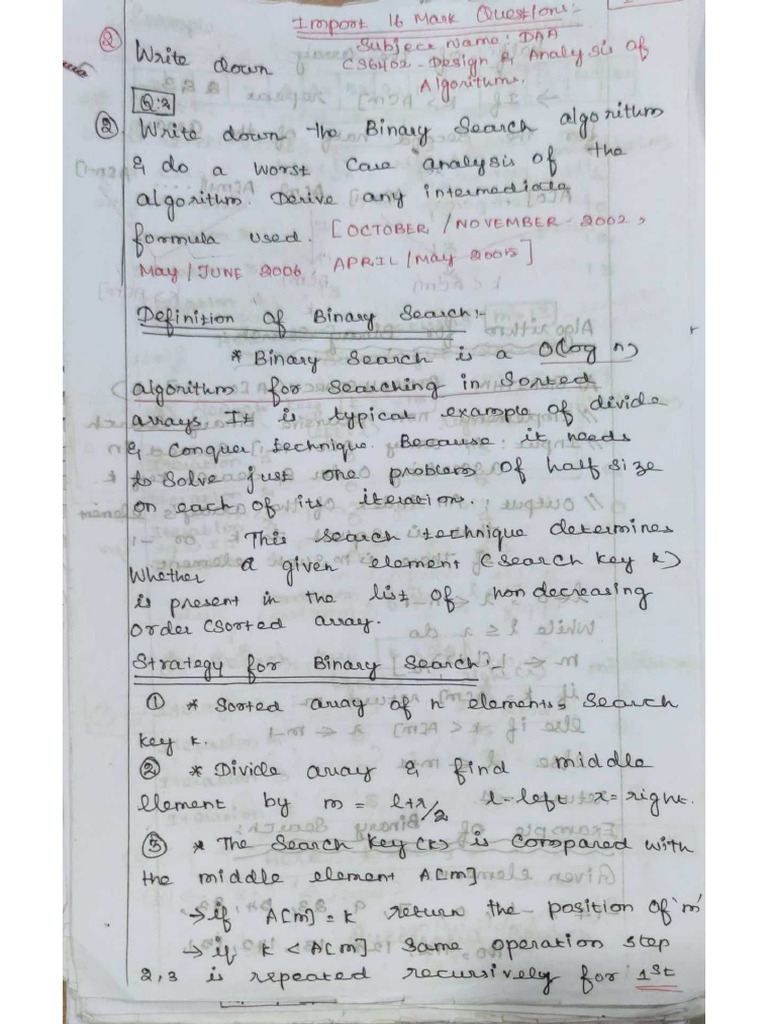 Import 16 Mark Questions:-
Subject Name: DAA
CS6402 - Design & Analysis of
Algorithms.
② Write down
Q:2
② Write down the Binary Search algorithm
& do a worst case analysis of the
algorithm. Derive any intermediate
formula used. [OCTOBER / NOVEMBER - 2002,
May / JUNE 2006, APRIL / May 20015]
Definition of Binary Search:-
* Binary Search is a O(log n)
algorithm for searching in sorted
arrays. It is typical example of divide
& Conquer technique. Because it needs
to solve just one problem of half size
on each of its iteration.
This search technique determines
Whether a given element (search key k)
is present in the list of non decreasing
order (sorted array.
Strategy for Binary Search:-
① * Sorted array of n elements; Search
key k.
② * Divide array & find middle
element by m = l+r/2 l-left r=right.
③ * The Search key (k) is compared with
the middle element A[m]
→ if A[m] = k return the position of 'm'
→ if k < A[m] same operation step
2,3 is repeated recursively for 1st